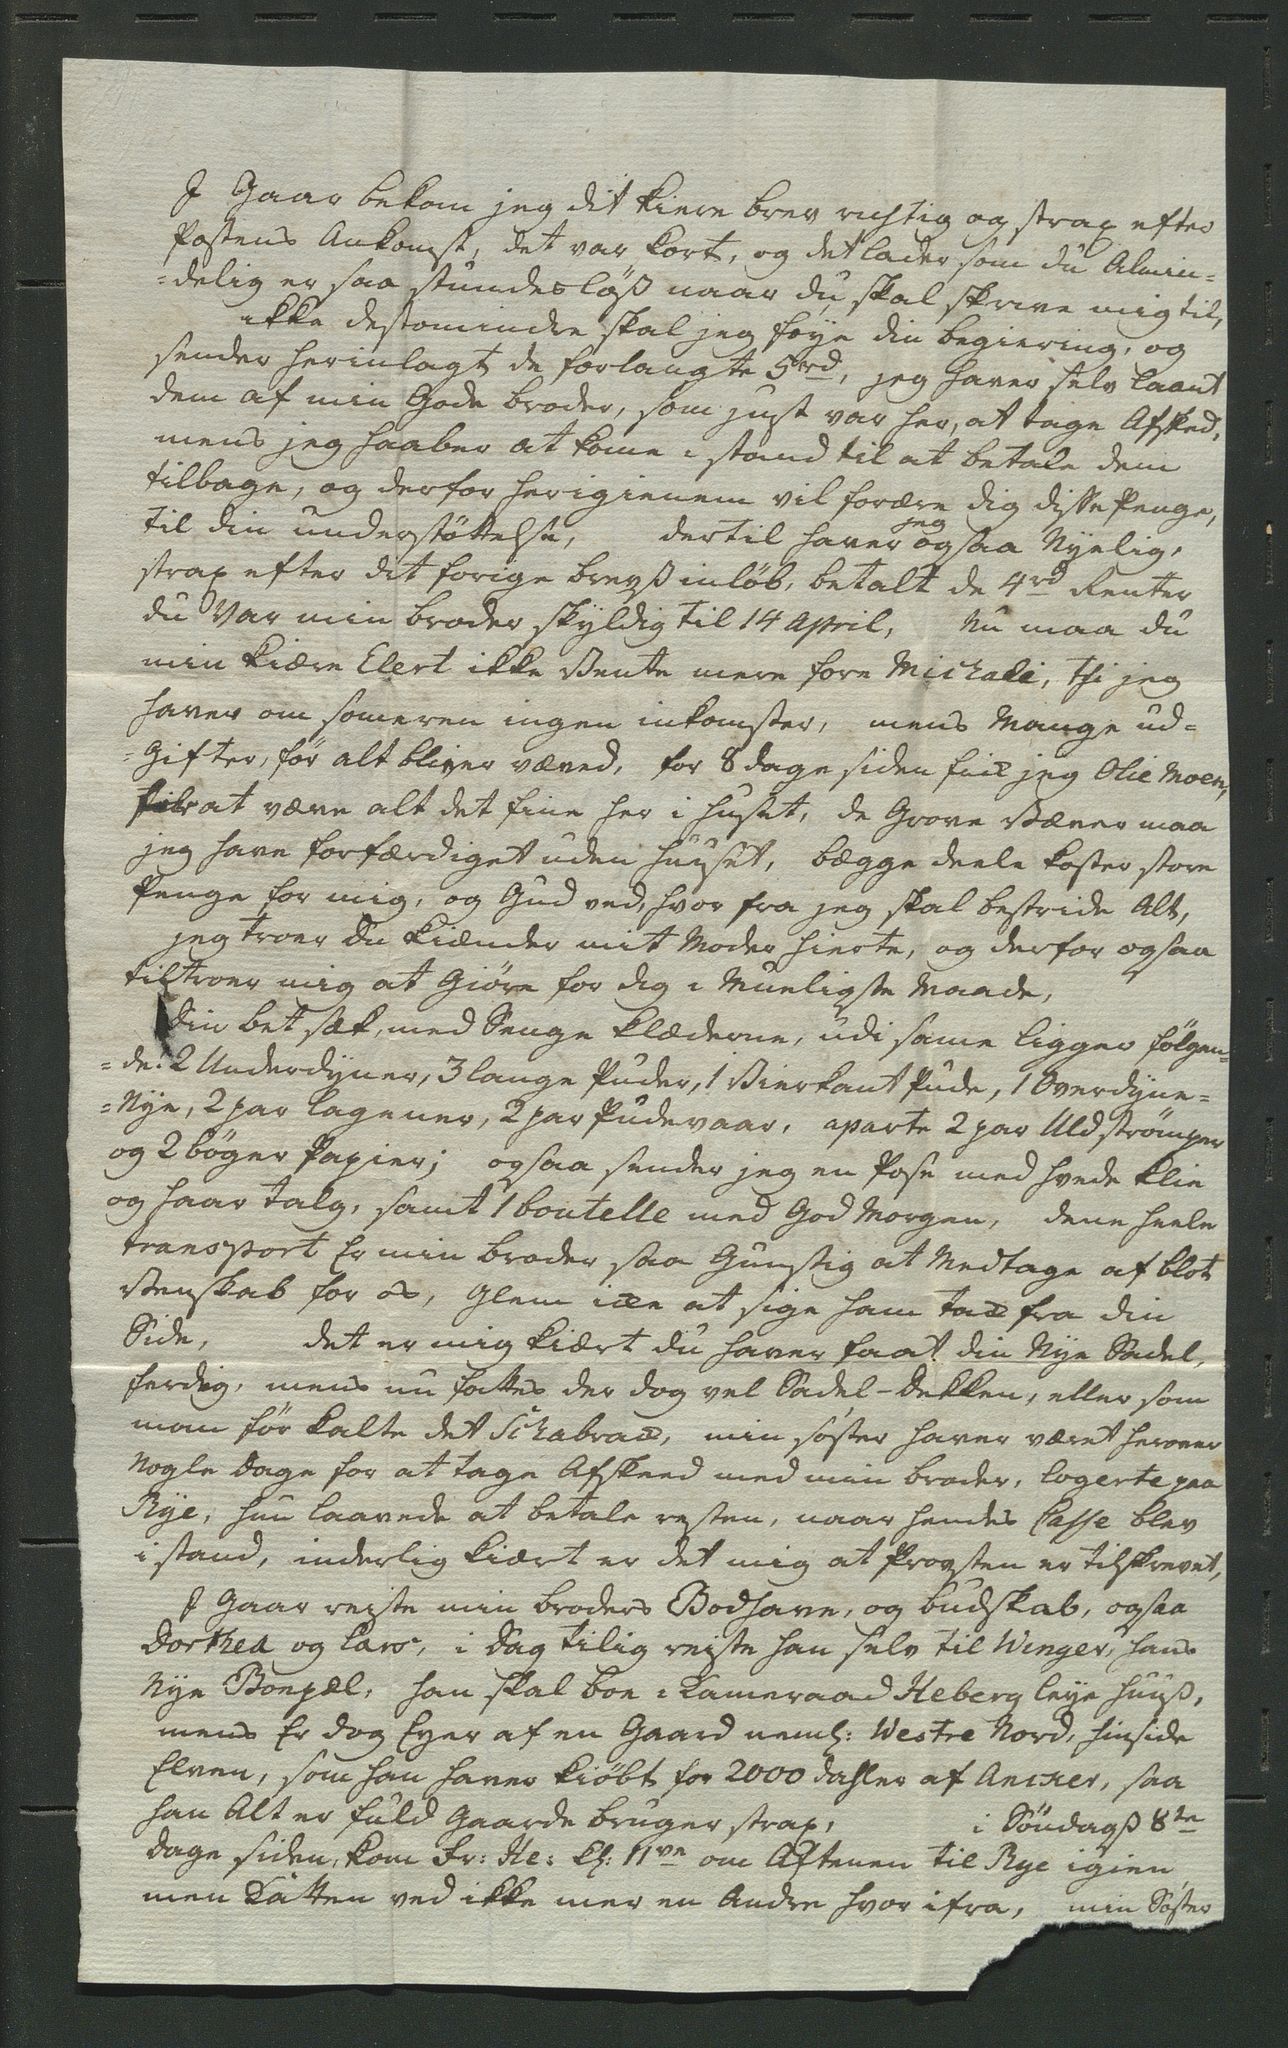 I Gaar bekom jeg dit kiere brev rigtig og strax efter
Postens Ankomst, det var kort, og det lader som du Almin=
=delig er saa stundesløß naar du skal skrive mig til,
ikke destomindre skal jeg føye din begiering, og
sender herinlagt de forlangte 5rd, jeg haver selv laant
dem af min Gode broder, som just var her, at tage Afsked,
mens jeg haaber at kome i stand til at betale dem
tilbage, og derfor herigienem vil forære dig disse Penge,
til din understøttelse, dertil haver jeg ogsaa Nyelig,
strax efter dit forige brevß inløb, betalt de 4rd Renter
du Var min broder skyldig til 14 April, Nu maa du
min kiære Elert ikke Vente mere fore Michaeli, thi jeg
haver om someren ingen inkomster, mens Mange ud=
=Gifter, før alt bliver væved, for 8 dage siden fick jeg Olie Moen,
at væve alt det fine her i huset, de Grove Væver maa
jeg have forfærdiget uden huuset, begge deele koster store
Penge for mig, og Gud ved, hvor fra jeg skal bestride Alt,
jeg troer Du kiender mit Moder hierte, og derfor ogsaa
tiltroer mig at Giöre for dig i Mueligste Maade,
Din bet sæk, med Senge klæderne, udi same ligger følgen=
=de: 2 Underdyner, 3 lange Puder, 1 Vierkant Pude, 1 Overdyne=
=Nye, 2 par lagener, 2 par Pudevaar, aparte 2 par Uld strømper
og 2 bøger Papier; ogsaa sender jeg en Pose med hvede klie
og haar talg, samt 1 boutelle med God Morgen, dene heele
transport Er min broder saa Gunstig at Medtage af blot
Venskab for os, Glem icke at sige ham tack fra din
Side, det er mig kiært du haver faat din Nye Sadel,
ferdig, mens nu fattes der dog vel Sadel-Dekken, eller som
man før kalte det Schabrack, min søster haver været herover
Nogle Dage for at tage Afskeed med min broder, logerte paa
Rye, hun laavede at betale resten, naar hendes Casse blev
i stand, inderlig kiært er det mig at Provsten er tilskrevet,
I Gaar reiste min broders Bodhave, og budskab, ogsaa
Dorthea og Lars, i Dag tilig reiste han selv til Winger, hans
Nye Bopæl, han skal boe i Kameraad Heberg leye huuß,
mens Er dog Eyer af en Gaard neml: Westre Nord, hinside
Elven, som han haver kiøbt for 2000 dahler af Ancker, saa
han Alt er fuld Gaarde bruger strax, i Søndagß 8te
dage siden, kom Fr: He: kl: 11ve om Aftenen til Rye igien
men Katten ved ikke mer en Andre hvor ifra, min Søster